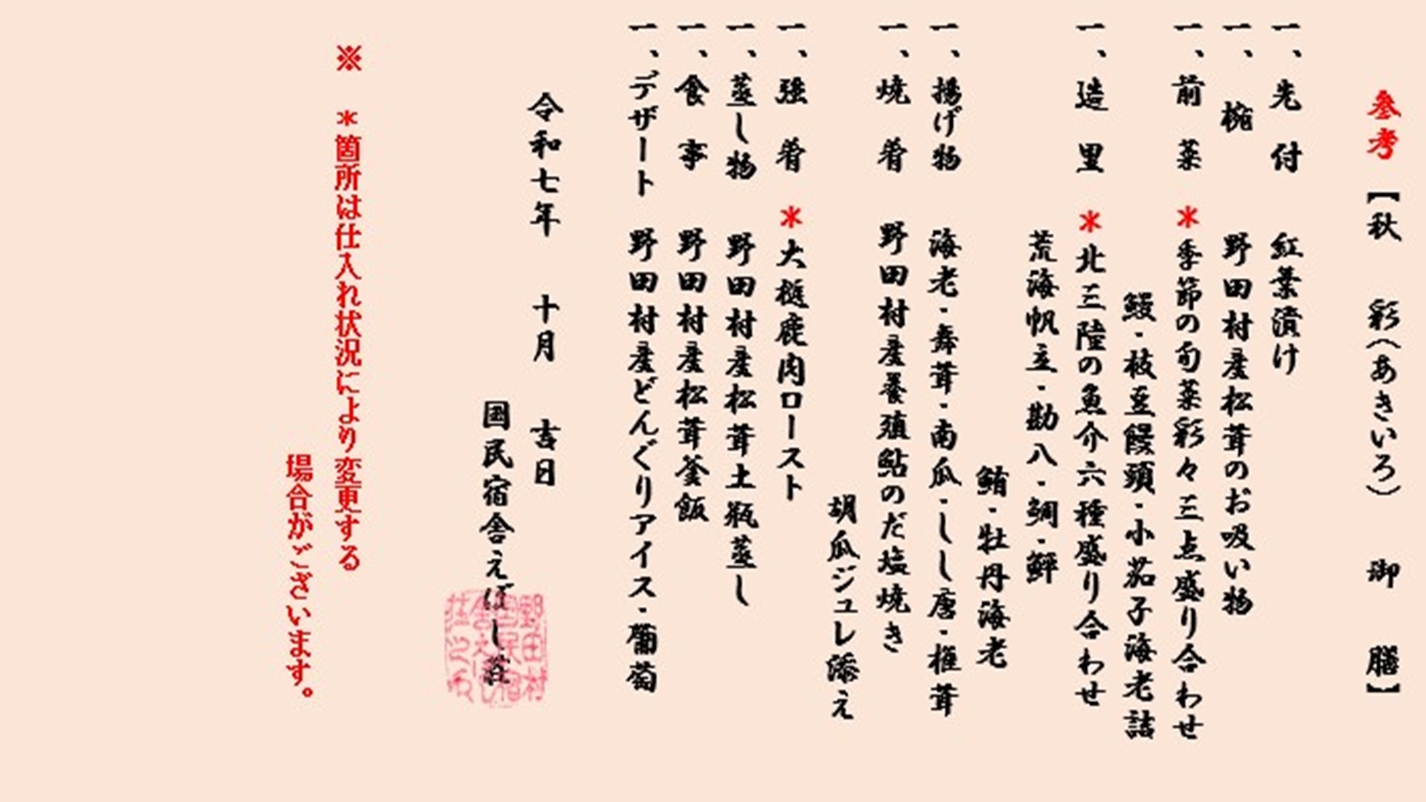 参考【秋 彩（あきいろ） 御 膳】
一、先 付 紅葉漬け
一、椀 野田村産松茸のお吸い物
一、前 菜 ＊季節の旬菜彩々三点盛り合わせ
鰻・枝豆饅頭・小茄子海老詰
一、造 里 ＊北三陸の魚介六種盛り合わせ
荒海帆立・勘八・鯛・鮃
鮪・牡丹海老
一、揚げ物 海老・舞茸・南瓜・しし唐・椎茸
一、焼 肴 野田村産養殖鮎のだ塩焼き
胡瓜ジュレ添え
一、強 肴 ＊大槌鹿肉ロースト
一、蒸し物 野田村産松茸土瓶蒸し
一、食 事 野田村産松茸釜飯
一、デザート 野田村産どんぐりアイス・葡萄
令和七年 十月 吉日
国民宿舎えぼし荘
※ ＊箇所は仕入れ状況により変更する
場合がございます。